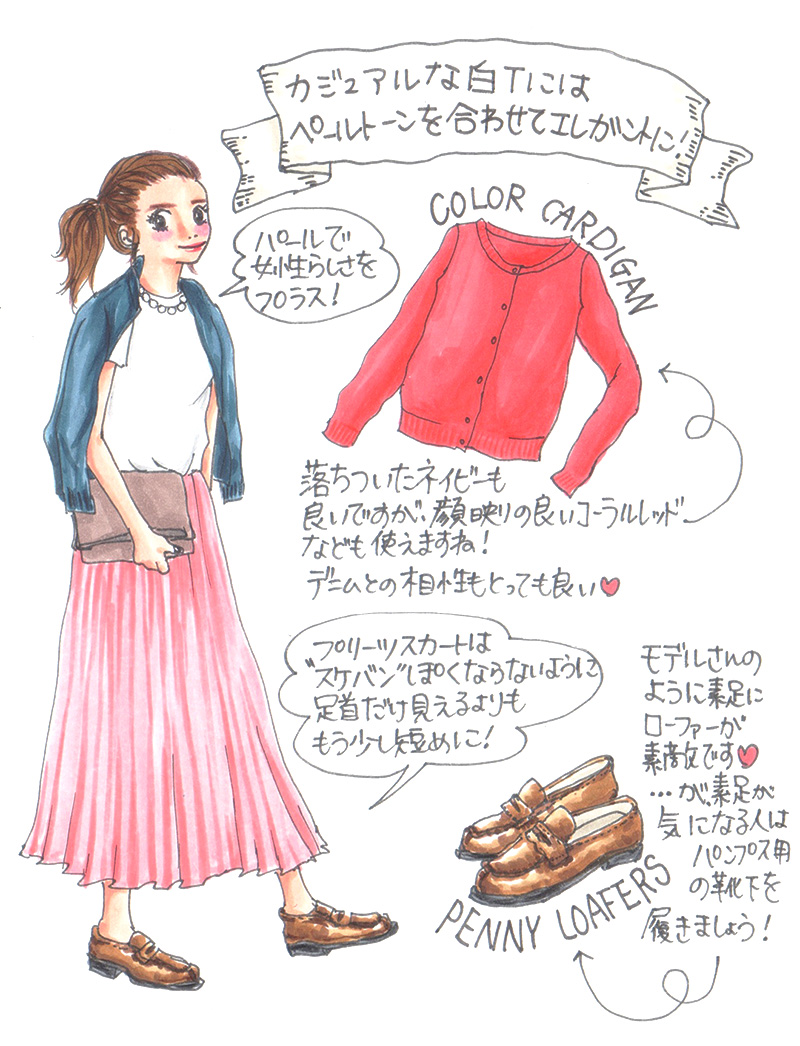 カジュアルな白Tには
ペールトーンを合わせてエレガントに!
パールで
女性らしさを
プラス!
COLOR CARDIGAN
落ちついたネイビーも
良いですが、顔映りの良いコーラルレッド
なども使えますね!
デニムとの相性もとっても良い♥
プリーツスカートは
"スケバン"ぽくならないように
足首だけ見えるよりも
もう少し短めに!
モデルさんの
ように素足に
ローファーが
素敵です♥
…が、素足が
気になる人は
パンプス用
の靴下を
履きましょう!
PENNY LOAFERS